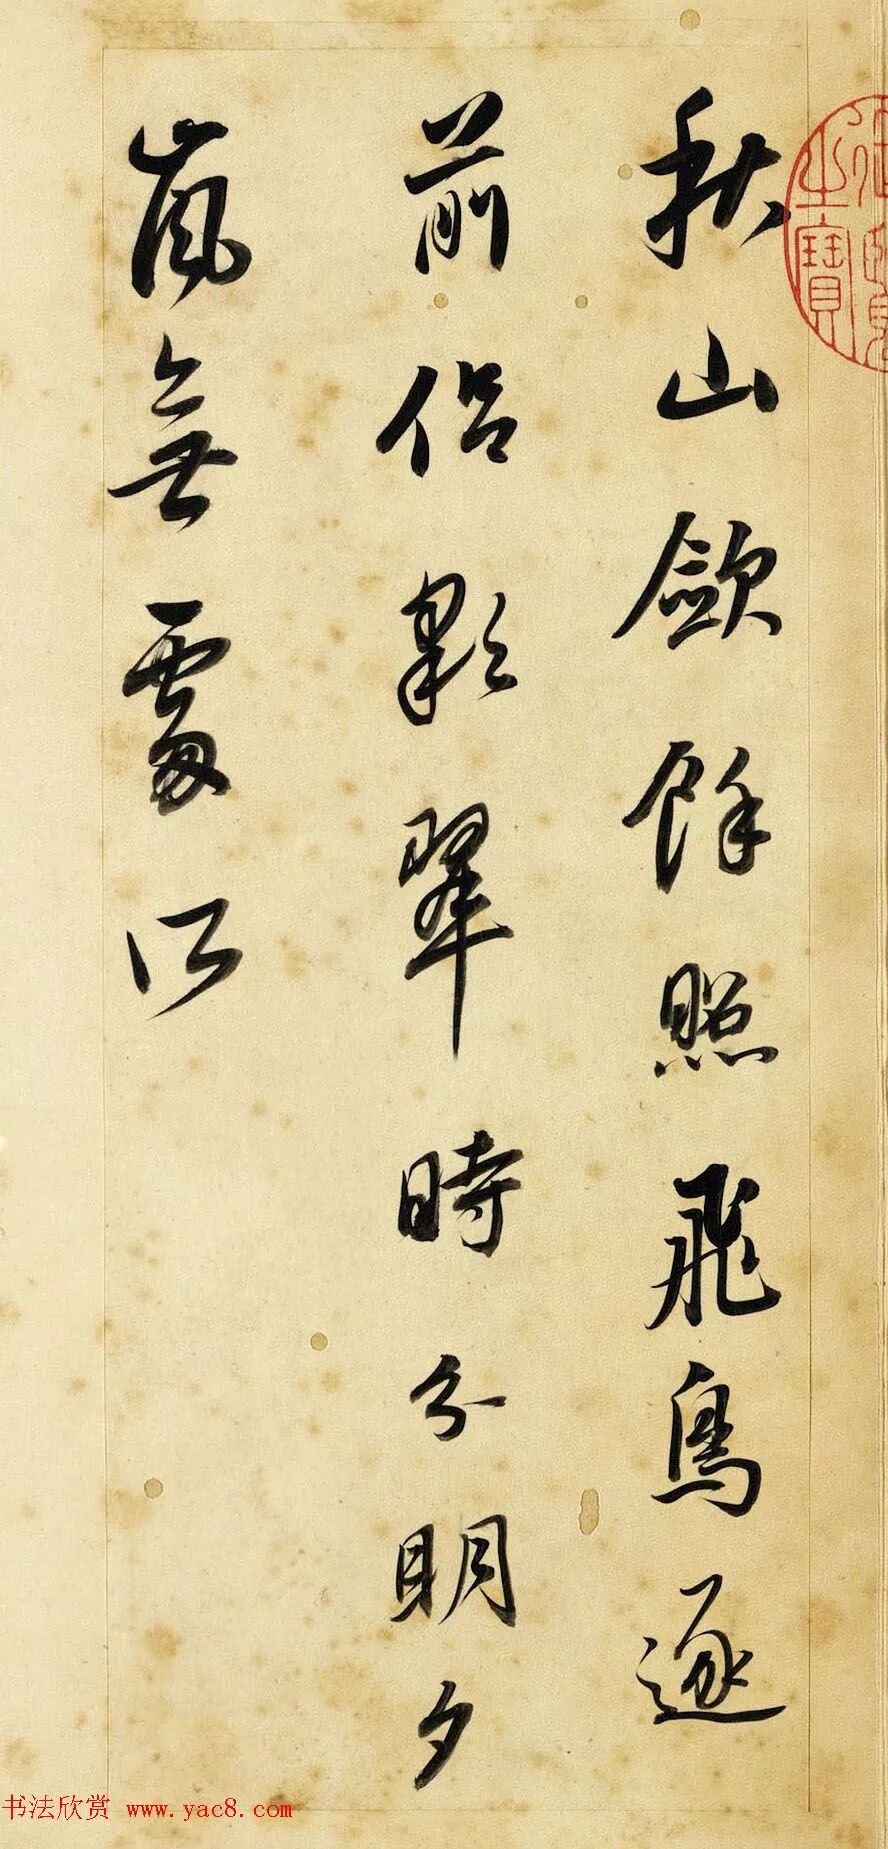 秋山歛餘照飛鳥逐
前侣彩翠時分明夕
嵐無處所
之寶
书法欣赏 www.yac8.com